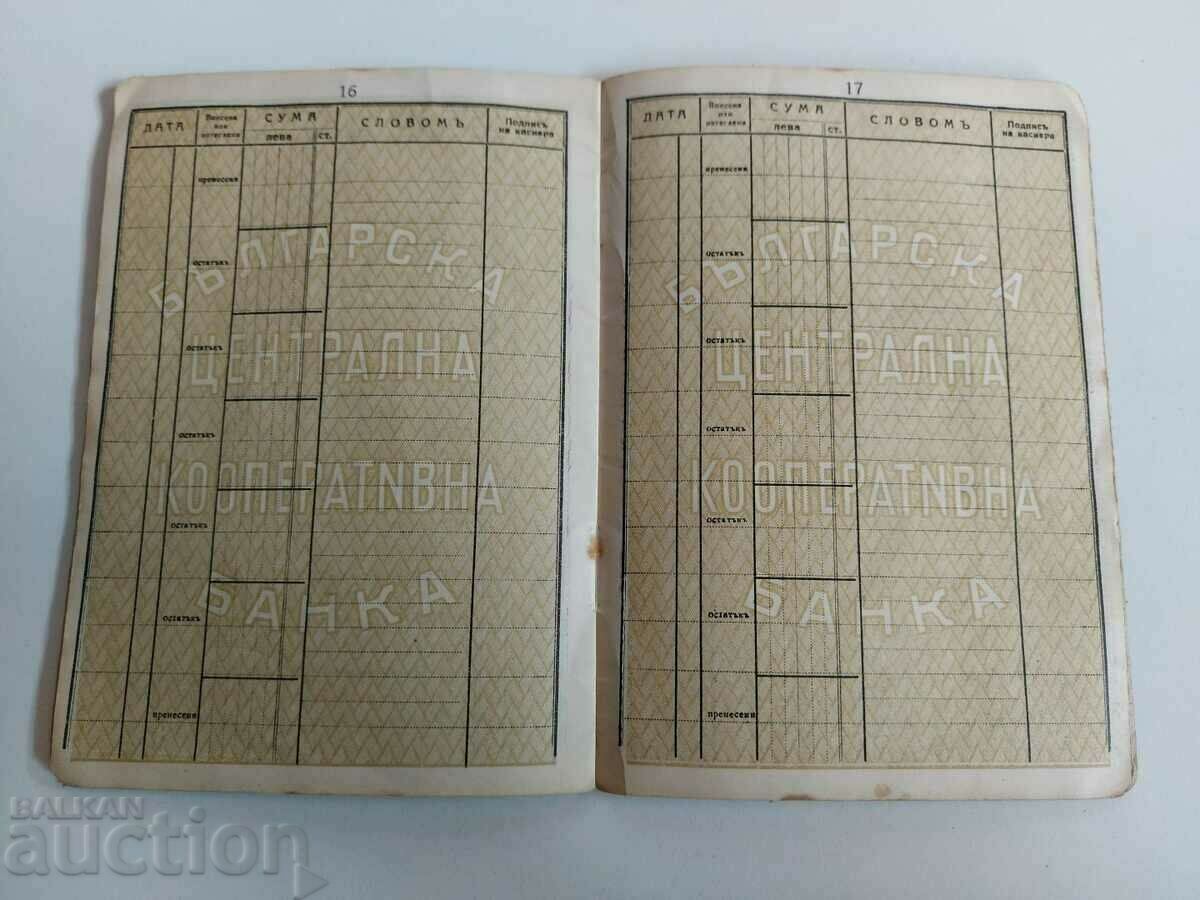 16
ДАТА Внесени или изтеглени СУМА лева ст. СЛОВОМЪ Подпись на касиера
пренесени
остатъкъ
остатъкъ
остатъкъ
остатъкъ
остатъкъ
пренесени
БЪЛГАРСКА
ЦЕНТРАЛНА
КООПЕРАТИВНА
БАНКА
17
ДАТА Внесени или изтеглени СУМА лева ст. СЛОВОМЪ Подпись на касиера
пренесени
остатъкъ
остатъкъ
остатъкъ
остатъкъ
остатъкъ
пренесени
БЪЛГАРСКА
ЦЕНТРАЛНА
КООПЕРАТИВНА
БАНКА
BALKAN
auction